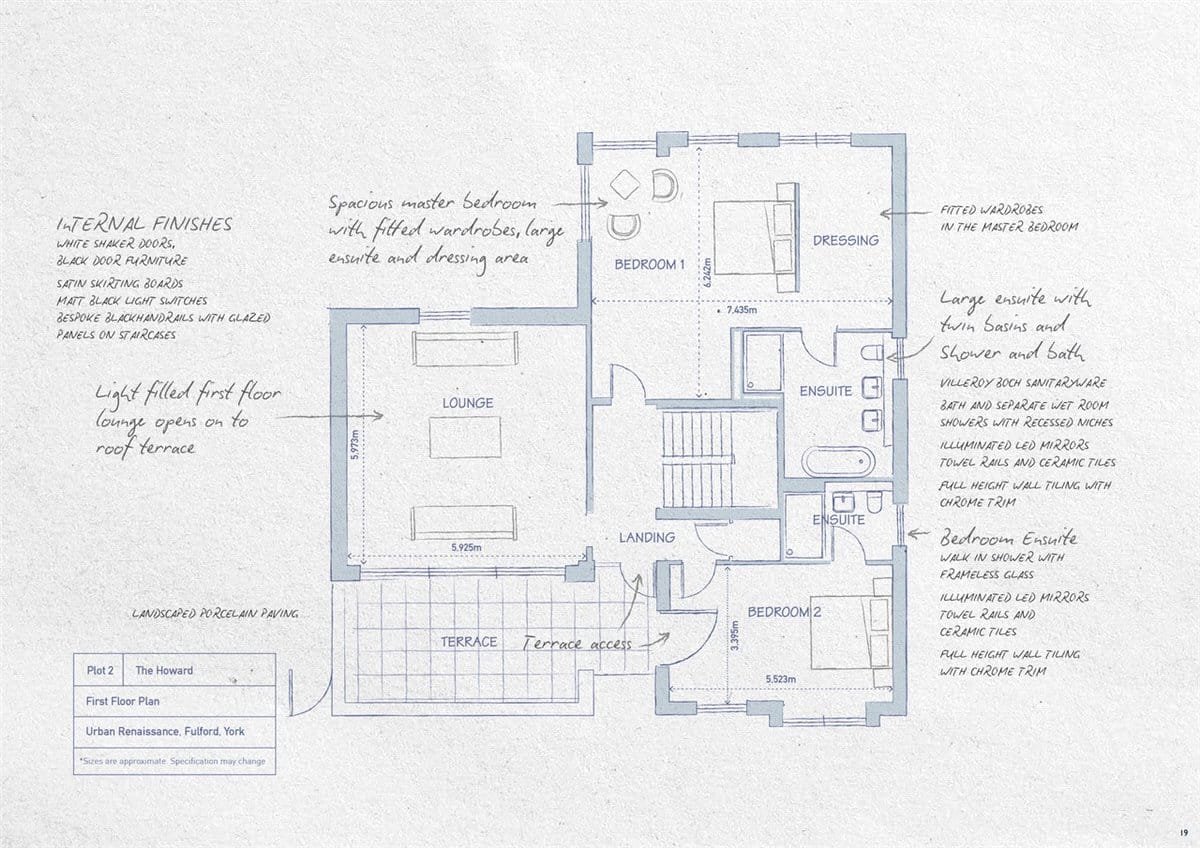 InTERNAL FINISHES
WHITE SHAKER DOORS,
BLACK DOOR FURNITURE
SATIN SKIRTING BOARDS
MATT BLACK LIGHT SWITCHES
BESPOKE BLACKHANDRAILS WITH GLAZED
PANELS ON STAIRCASES
Spacious master bedroom
with fitted wardrobes, large
ensuite and dressing area
Light filled first floor
lounge opens on to
roof terrace
LANDSCAPED PORCELAIN PAVING
BEDROOM 1
6.242m
7.435m
DRESSING
LOUNGE
5.973m
5.925m
ENSUITE
LANDING
ENSUITE
BEDROOM 2
3.395m
5.523m
TERRACE
Terrace access
FITTED WARDROBES
IN THE MASTER BEDROOM
Large ensuite with
twin basins and
Shower and bath
VILLEROY BOCH SANITARYWARE
BATH AND SEPARATE WET ROOM
SHOWERS WITH RECESSED NICHES
ILLUMINATED LED MIRRORS
TOWEL RAILS AND CERAMIC TILES
FULL HEIGHT WALL TILING WITH
CHROME TRIM
Bedroom Ensuite
WALK IN SHOWER WITH
FRAMELESS GLASS
ILLUMINATED LED MIRRORS
TOWEL RAILS AND
CERAMIC TILES
FULL HEIGHT WALL TILING
WITH CHROME TRIM
Plot 2 The Howard
First Floor Plan
Urban Renaissance, Fulford, York
*Sizes are approximate. Specification may change
19